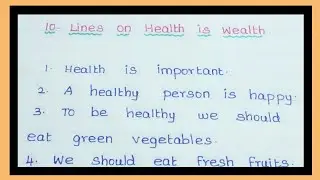 10- Lines on Health is Wealth
1. Health is important.
2. A healthy person is happy.
3. To be healthy we should
eat green vegetables.
4. We should eat fresh fruits.